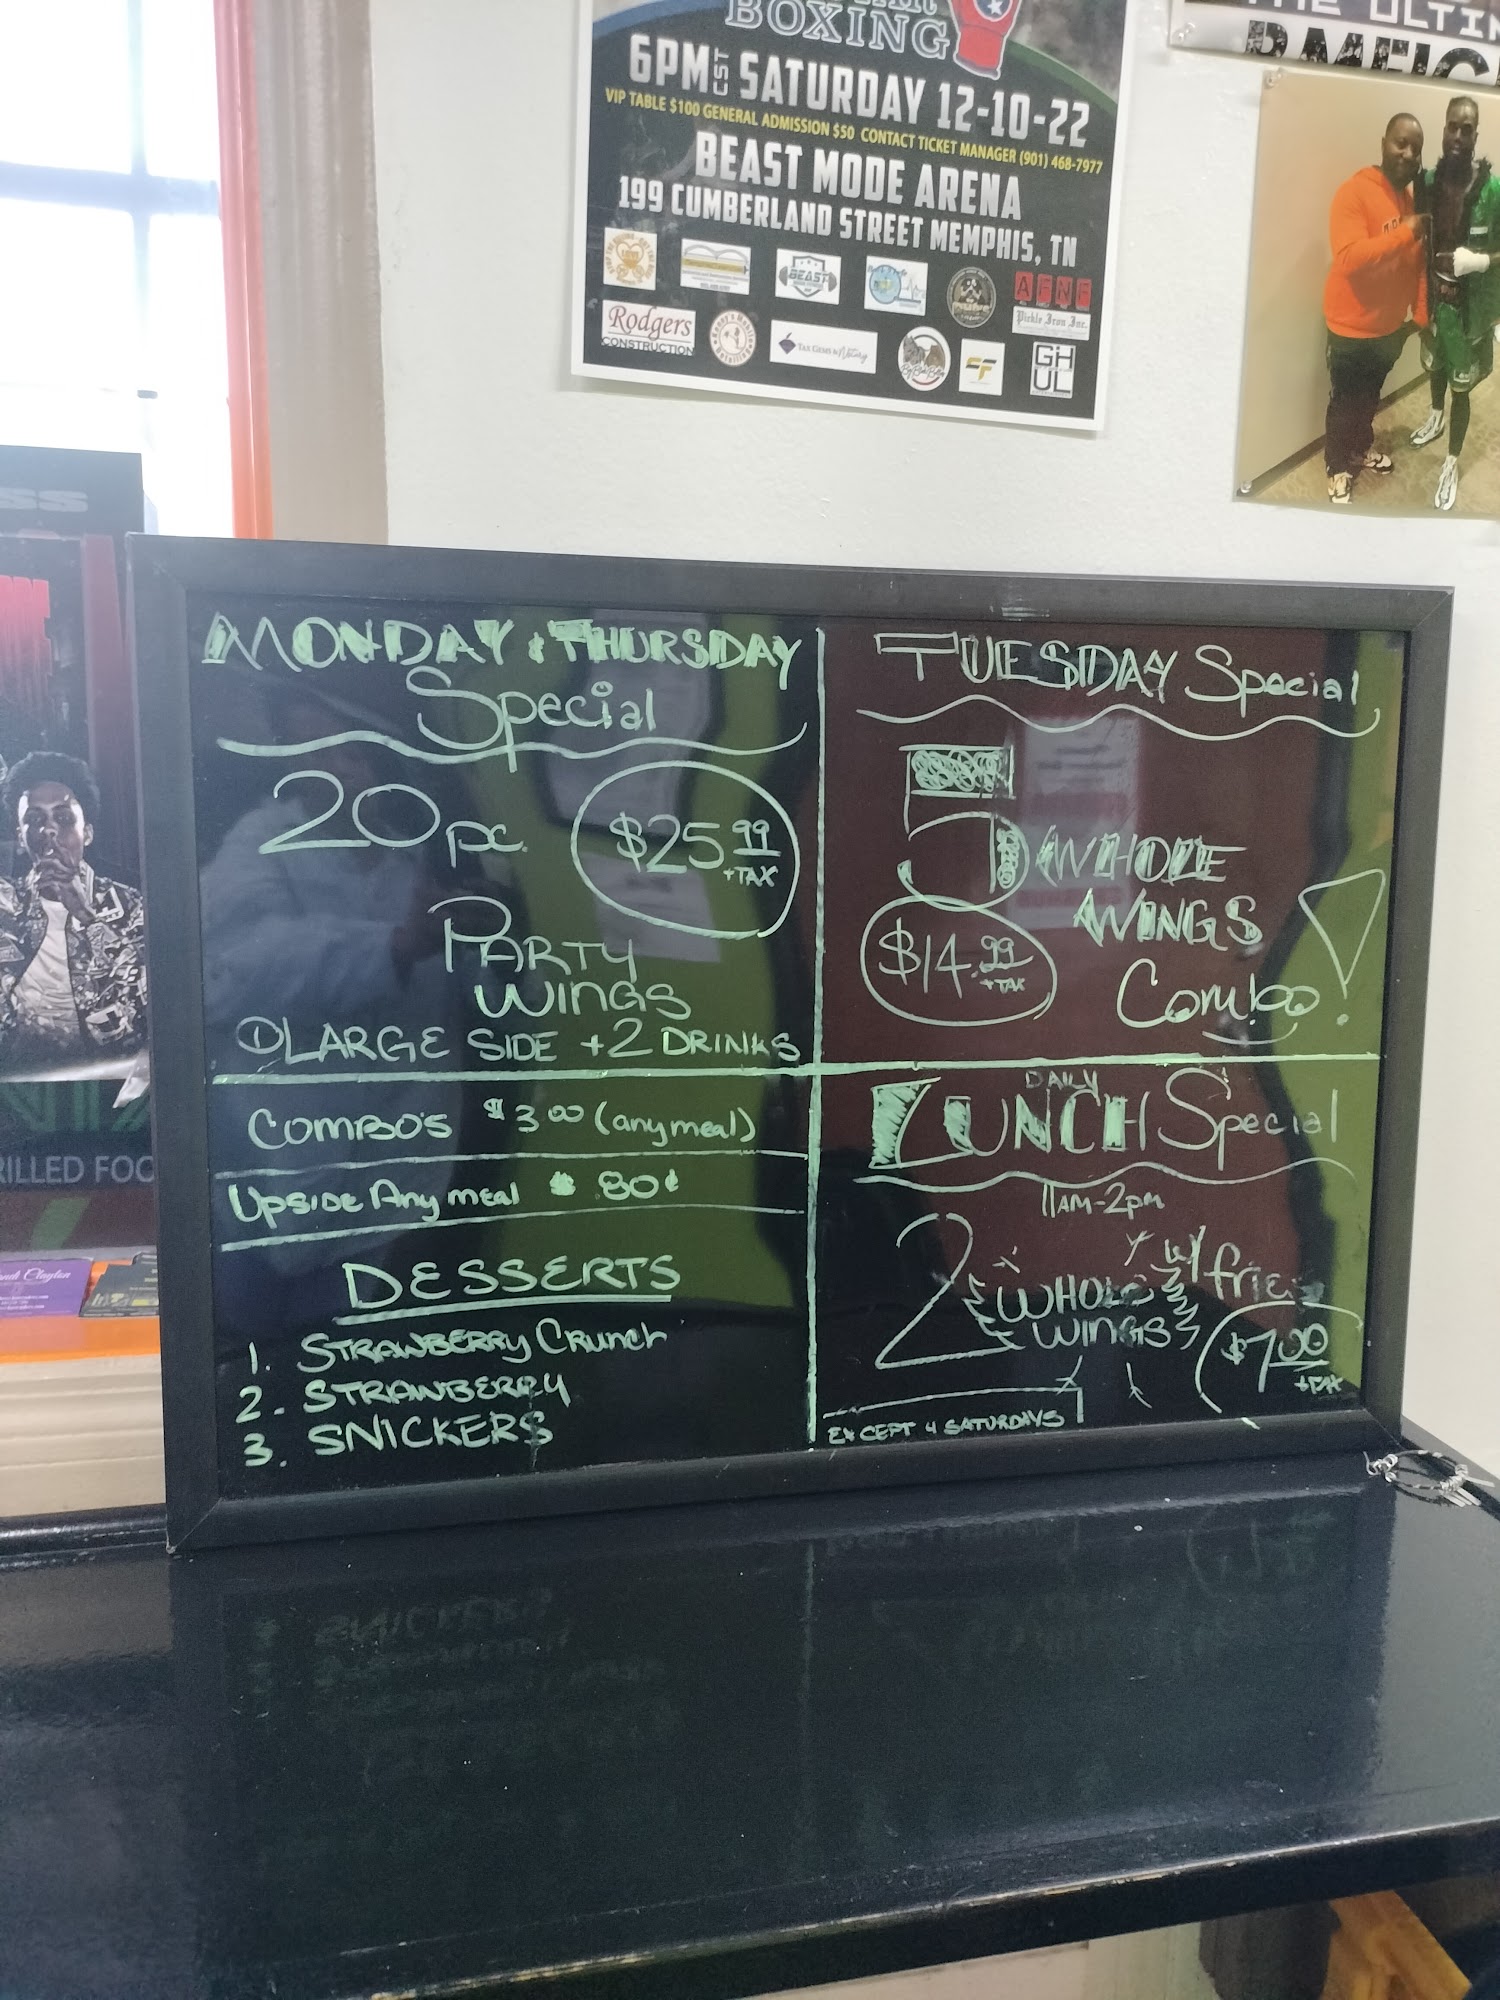 BOXING
6PM CST SATURDAY 12-10-22
VIP TABLE $100 GENERAL ADMISSION $50 CONTACT TICKET MANAGER (901) 468-7977
BEAST MODE ARENA
199 CUMBERLAND STREET MEMPHIS, TN
BEAST
AFNF
Pickle Iron Inc.
Rodgers
CONSTRUCTION
TAX GEMS & Notary
CF
GH
UL
THE ULTIM
MONDAY & THURSDAY
Special
20 pc. $25.99
+TAX
PARTY
WINGS
① LARGE SIDE + 2 DRINKS
COMBO'S $3.00 (any meal)
UPSIDE Any meal $ .80¢
DESSERTS
1. STRAWBERRY CRUNCH
2. STRAWBERRY
3. SNICKERS
TUESDAY Special
5 WHOLE
WINGS
Combo!
$14.99
+TAX
DAILY
LUNCH Special
11AM-2pm
2 WHOLE
WINGS
w/ frie
$7.00
+TAX
EXCEPT 4 SATURDAYS
SS
RILLED FOO
Clayton